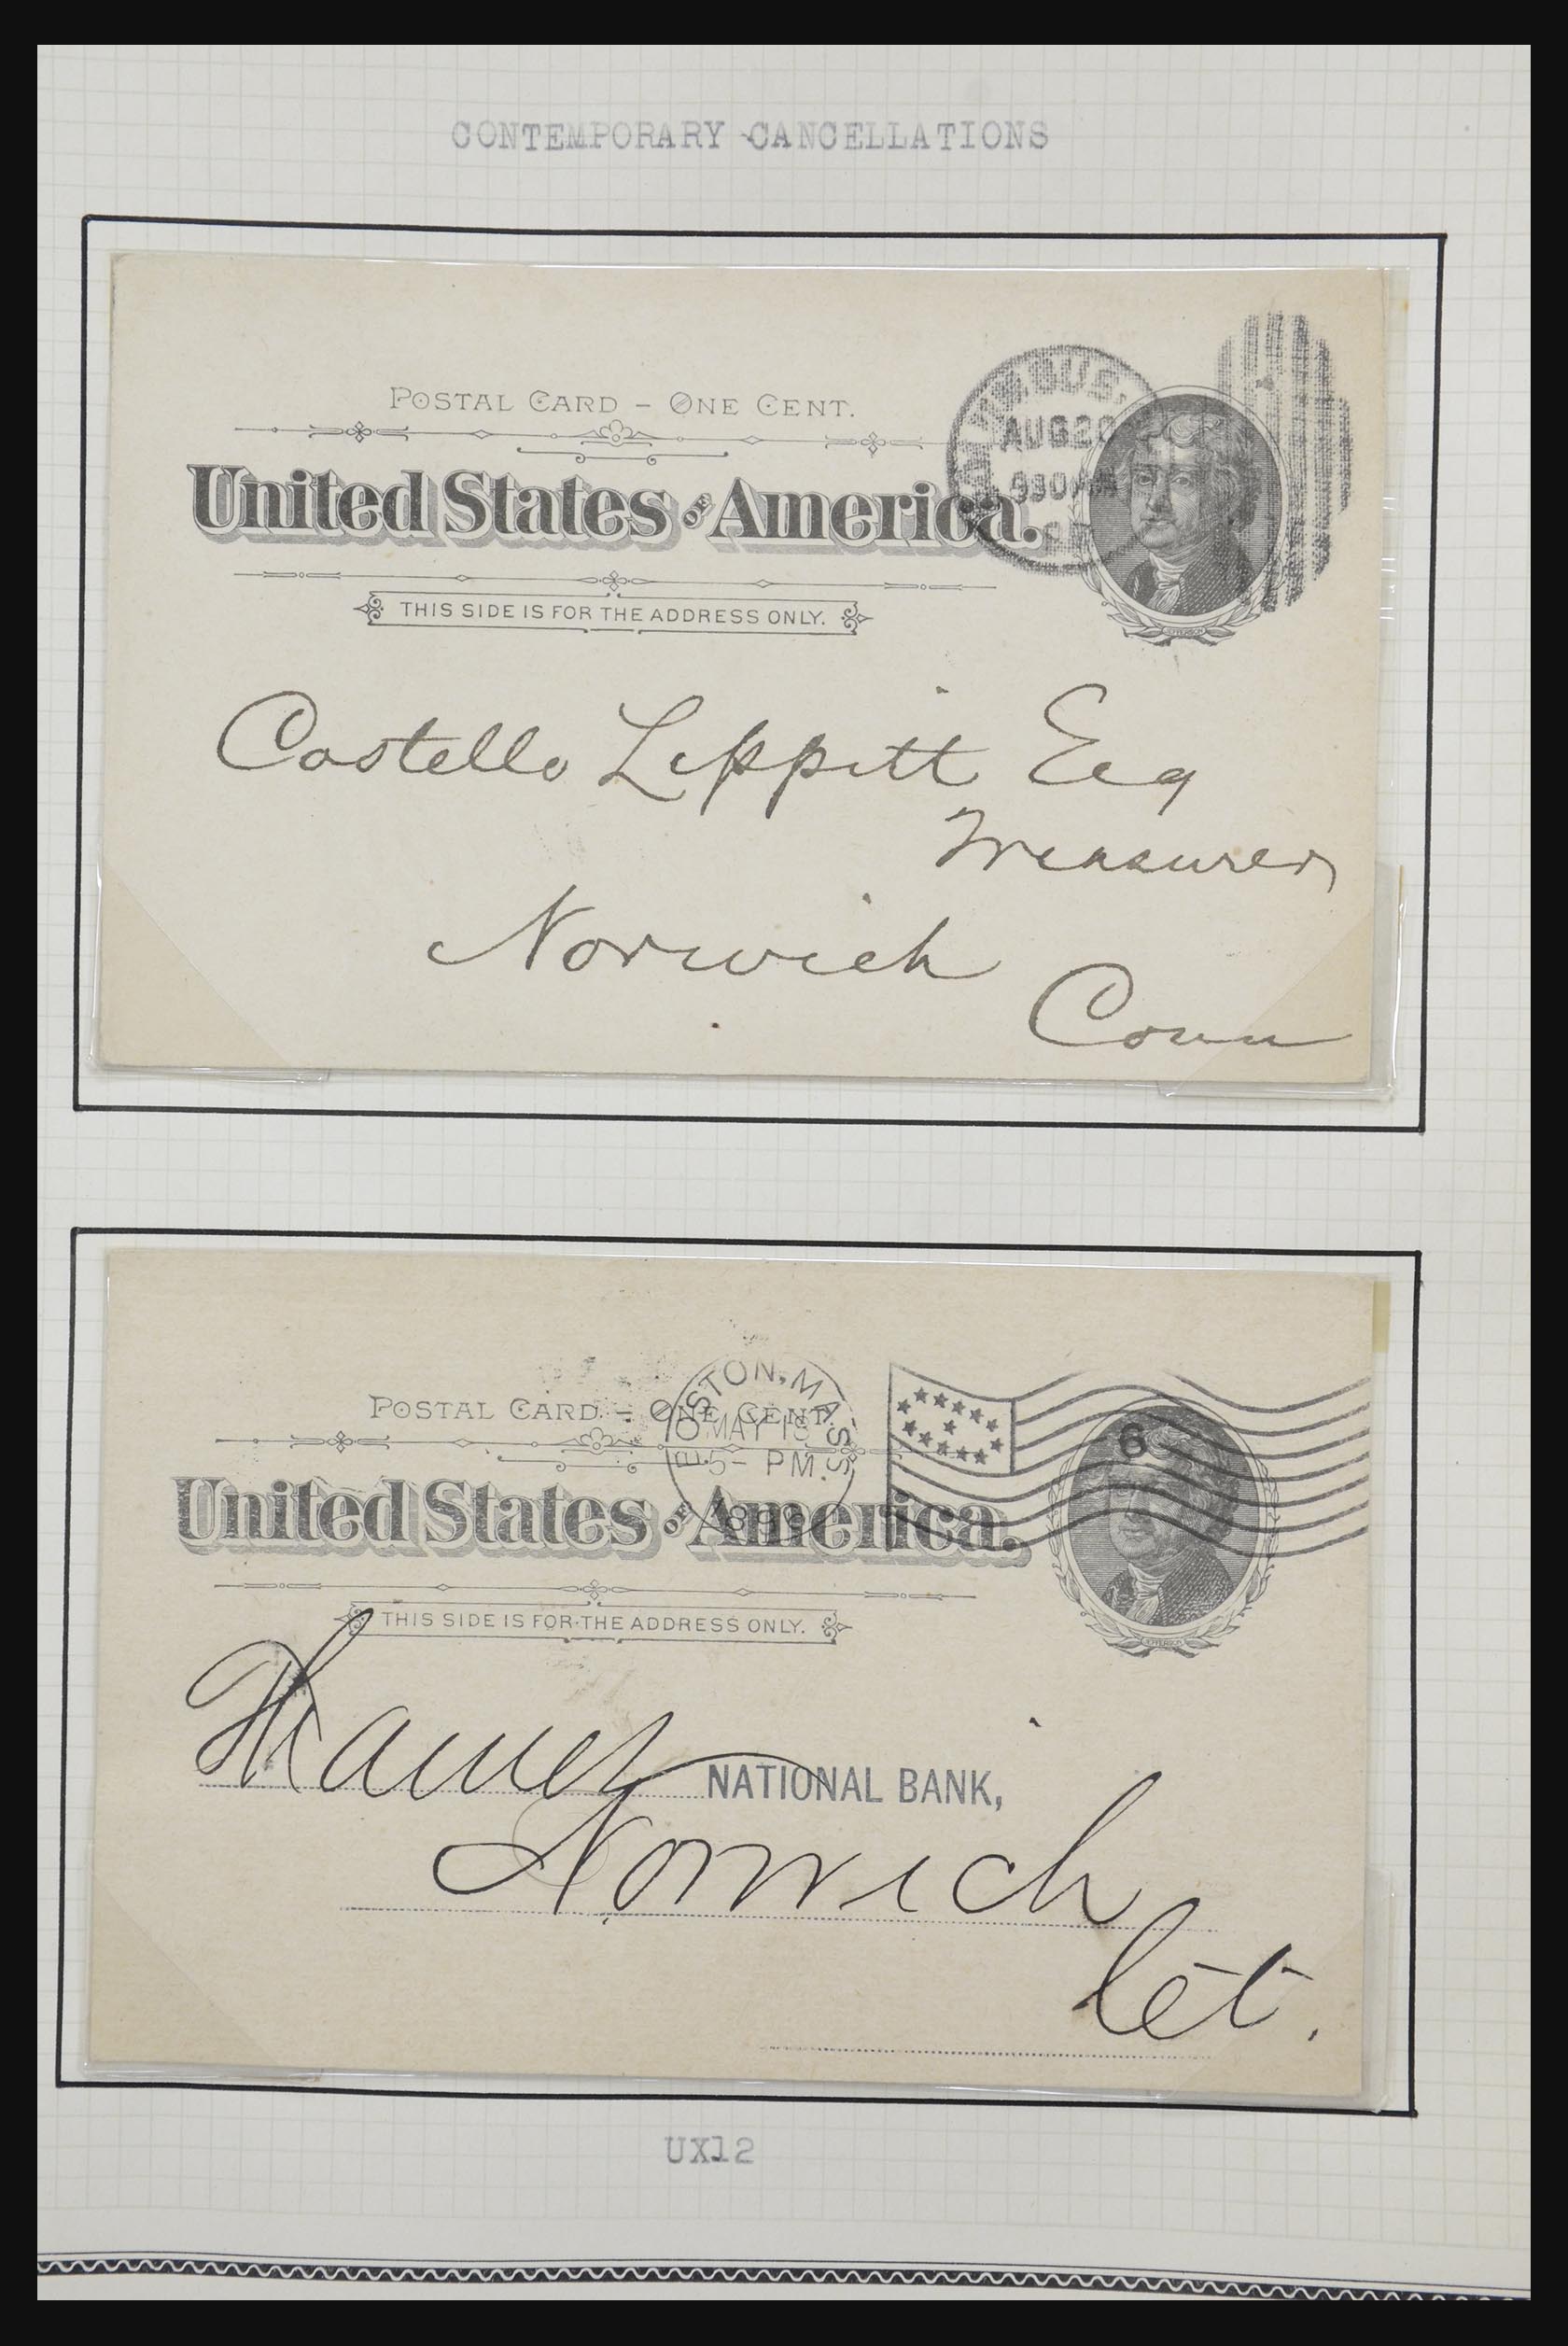 CONTEMPORARY CANCELLATIONS
POSTAL CARD – ONE CENT.
United States OF America.
THIS SIDE IS FOR THE ADDRESS ONLY.
AUG 20
930 AM
JEFFERSON
Costello Lippitt Esq
Treasurer
Norwich
Conn
POSTAL CARD – ONE CENT.
United States OF America.
THIS SIDE IS FOR THE ADDRESS ONLY.
BOSTON, MASS.
MAY 13
5 – PM
1896
6
JEFFERSON
Thames NATIONAL BANK,
Norwich
Ct.
UX12